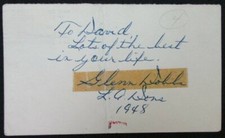 To David
Lots of the best
in your life.
Glenn Dobbs
L.A Dons
1948